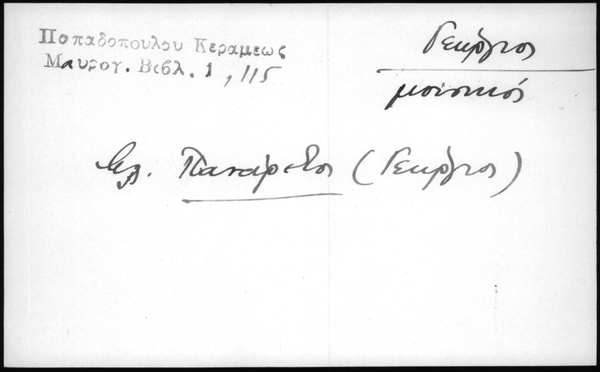 Παπαδοπουλου Κεραμεως
Μαυρογ. Βιβλ. 1, 115
Γεώργιος
μουσικός
βλ. Πανάρετος (Γεώργιος)